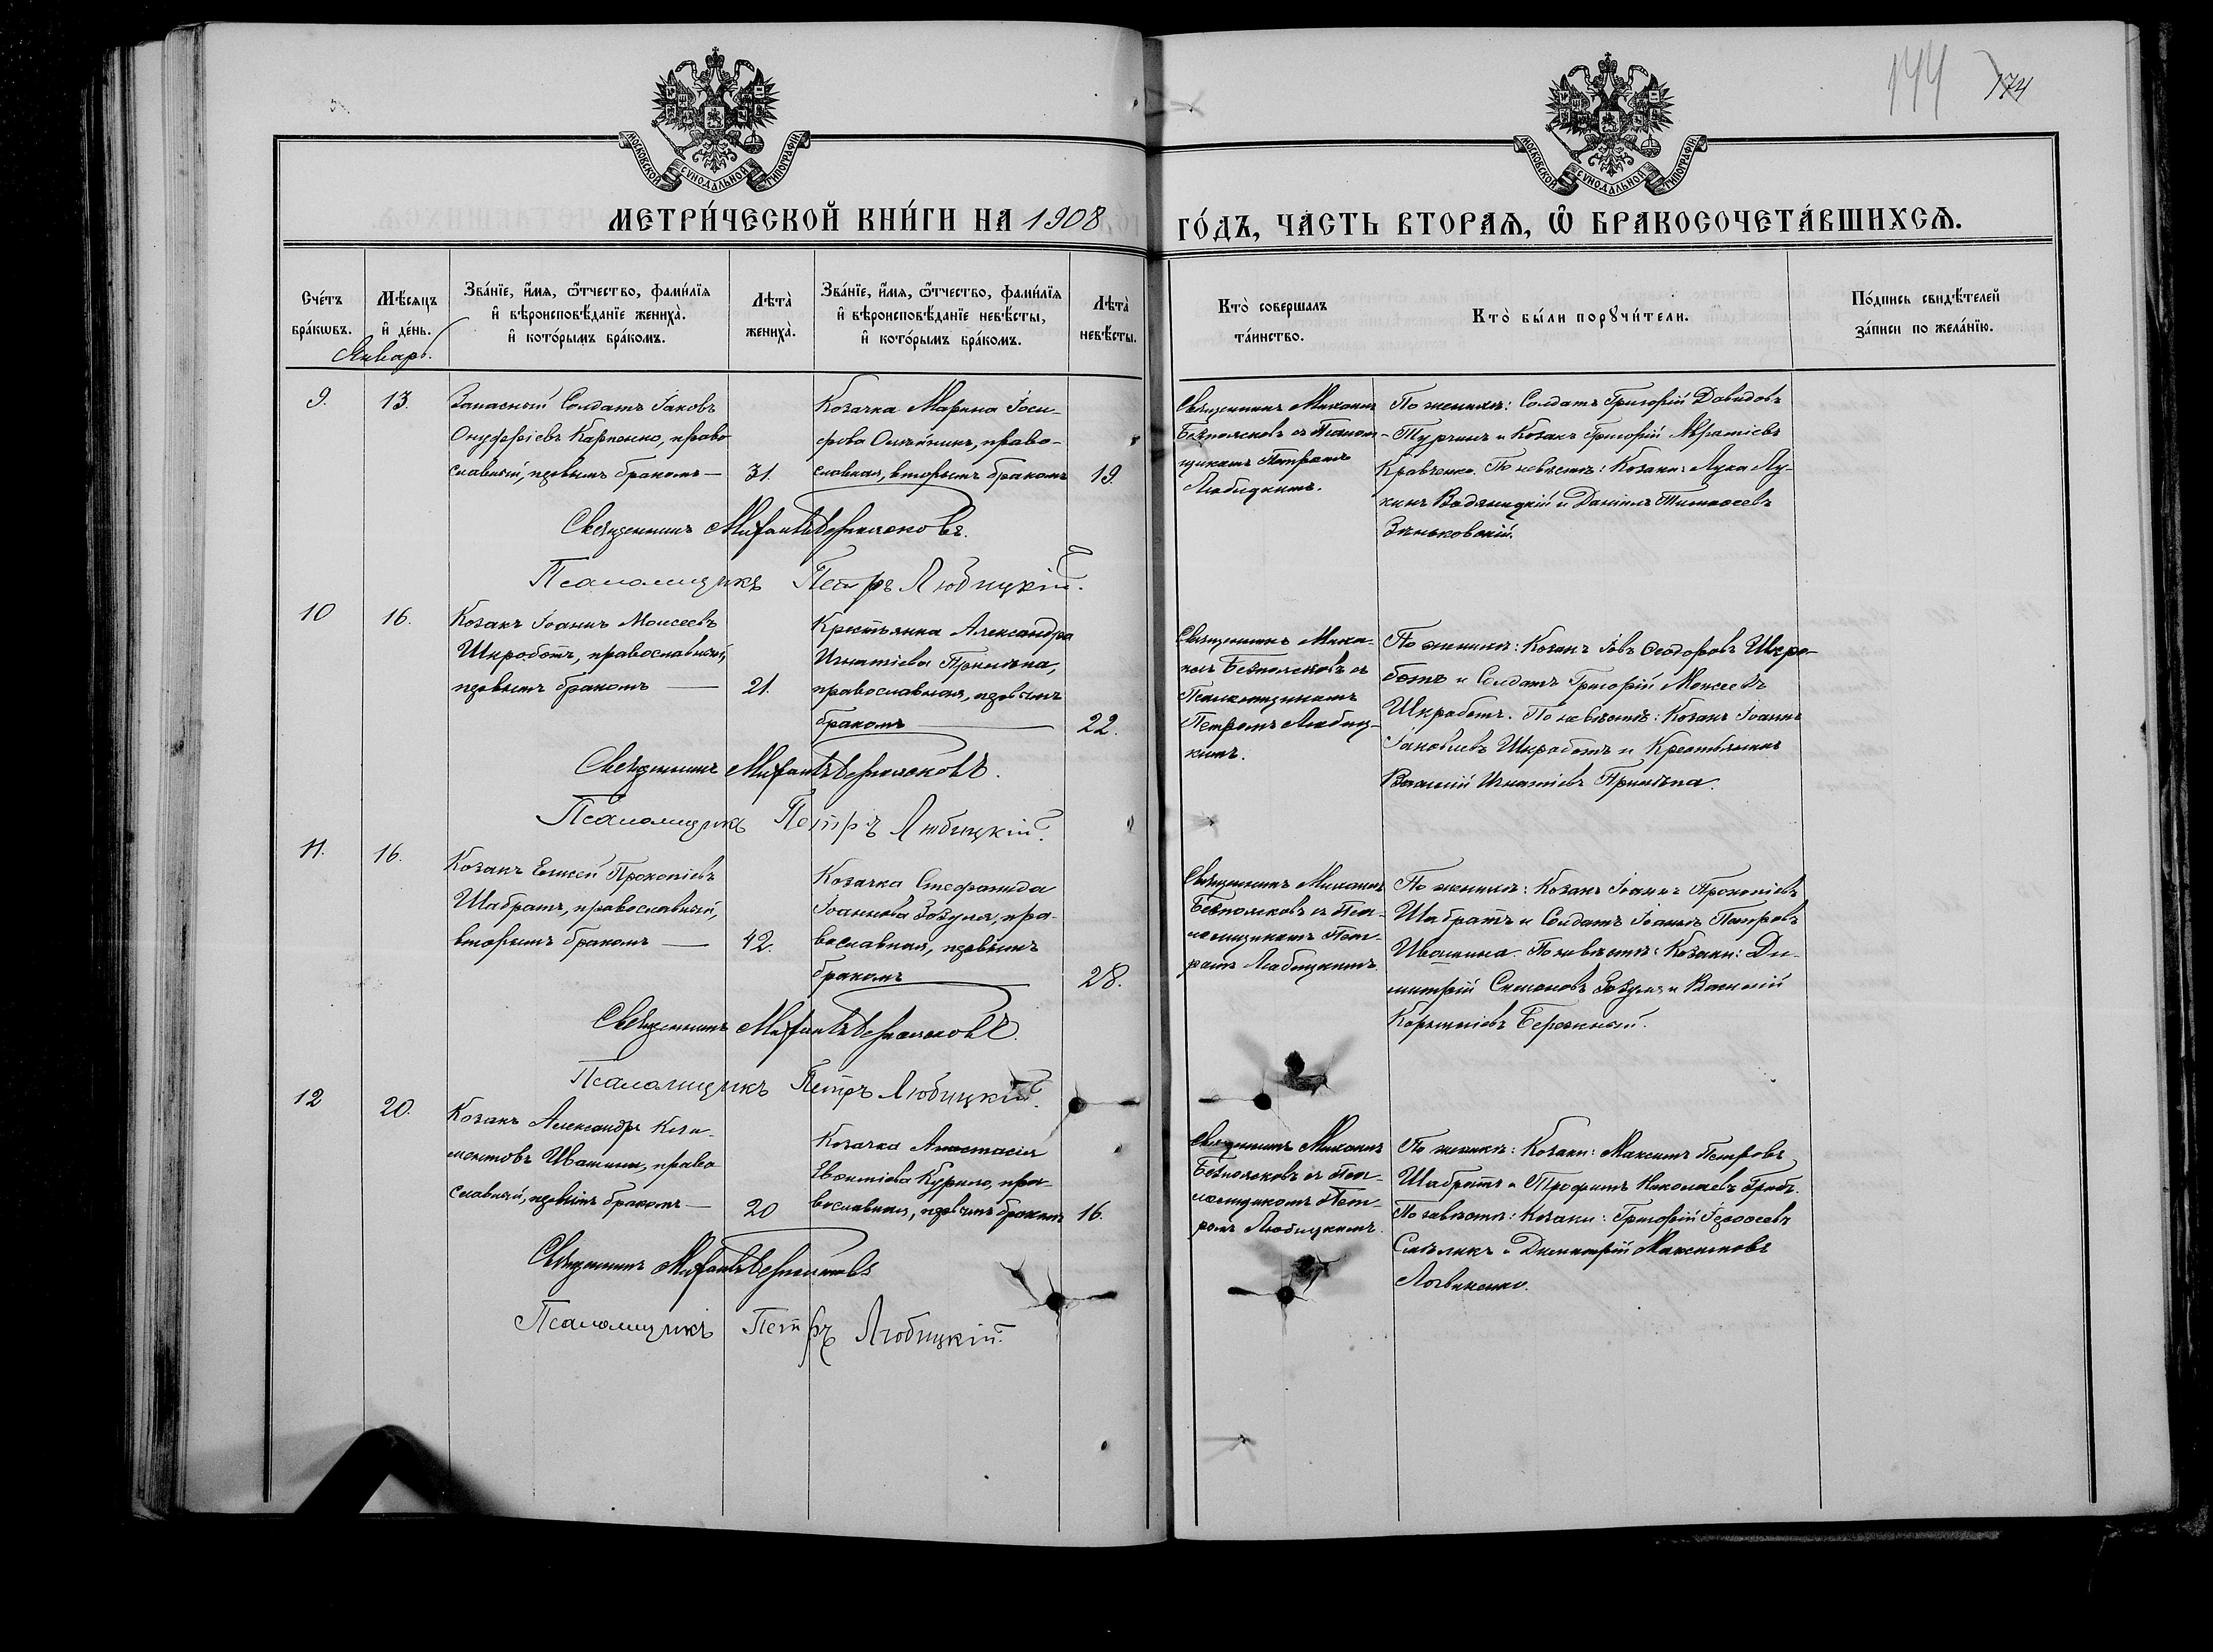 144 174
МОСКОВСКОЙ СѴНОДАЛЬНОЙ ТИПОГРАФІИ
МОСКОВСКОЙ СѴНОДАЛЬНОЙ ТИПОГРАФІИ
МЕТРИ́ЧЕСКОЙ КНИ́ГИ НА 1908
ГО́ДЪ, ЧАСТЬ ВТОРАѦ, Ѡ҆ БРАКОСОЧЕТА́ВШИХСѦ.
Сче́тъ
бра́кѡвъ.
Мѣ́сяцъ
и҆ де́нь.
Январь.
Зва́нїе, и҆́мя, ѻ҆́тчество, фами́лїя
и҆ вѣроисповѣ́данїе жениха̀.
и҆ кото́рымъ бра́комъ.
Лѣта̀
жениха̀.
Зва́нїе, и҆́мя, ѻ҆́тчество, фами́лїя
и҆ вѣроисповѣ́данїе невѣ́сты,
и҆ кото́рымъ бра́комъ.
Лѣта̀
невѣ́сты.
Кто̀ соверша́лъ
та́инство.
Кто̀ бы́ли порꙋчи́тели.
По́дпись свидѣ́телей
за́писи по жела́нїю.
9.
13.
Запасный Солдатъ Іаковъ
Онуфріевъ Карпенко, право
славный, первымъ бракомъ —
31.
Козачка Марина Іоси-
фова, право-
славная, вторымъ бракомъ
19.
Священникъ Михаилъ
Безпоясковъ съ Псалом-
щикомъ Петромъ
Любицкимъ.
По женихѣ: Солдатъ Григорій Давидовъ
Турчинъ и Козакъ Григорій
Кравченко. По невѣстѣ: Козаки: Лука Лу-
кинъ Водяницкій и Даніилъ Тимоѳеевъ
Зѣньковскій.
Священникъ Михаилъ Безпоясковъ.
Псаломщикъ Петръ Любицкій.
10
16.
Козакъ Іоаннъ Моисеевъ
Шкроботъ, православный,
первымъ бракомъ —
21.
Крестьянка Александра
Игнатіева,
православная, первымъ
бракомъ —
22.
Священникъ Миха-
илъ Безпоясковъ съ
Псаломщикомъ
Петромъ Любиц-
кимъ.
По женихѣ: Козакъ Іовъ Ѳеодоровъ Шкро-
ботъ и Солдатъ Григорій Моисеевъ
Шкроботъ. По невѣстѣ: Козакъ Іоаннъ
Іаковлевъ Шкроботъ и Крестьянинъ
Василій Игнатіевъ
Священникъ Михаилъ Безпоясковъ.
Псаломщикъ Петръ Любицкій.
11.
16.
Козакъ Елисей Прокопіевъ
Шабратъ, православный,
вторымъ бракомъ —
42.
Козачка Стефанида
Іоаннова Зозуля, пра-
вославная, первымъ
бракомъ —
28.
Священникъ Михаилъ
Безпоясковъ съ Пса-
ломщикомъ Пет-
ромъ Любицкимъ.
По женихѣ: Козакъ Іоаннъ Прокопіевъ
Шабратъ и Солдатъ Іоаннъ Петровъ
Ивашина. По невѣстѣ: Козаки: Ди-
митрій Симоновъ Зозуля и Василій
Бережный.
Священникъ Михаилъ Безпоясковъ.
Псаломщикъ Петръ Любицкій.
12
20.
Козакъ Александръ Кли-
ментовъ Ивашина, право
славный, первымъ бракомъ —
20
Козачка Анастасія
Евѳиміева Курило, пра-
вославная, первымъ бракомъ
16.
Священникъ Михаилъ
Безпоясковъ съ Пса-
ломщикомъ Пет-
ромъ Любицкимъ.
По женихѣ: Козаки: Максимъ Петровъ
Шабратъ и Трофимъ Николаевъ
По невѣстѣ: Козаки: Григорій
и Димитрій Максимовъ
Логвиненко.
Священникъ Михаилъ Безпоясковъ
Псаломщикъ Петръ Любицкій.